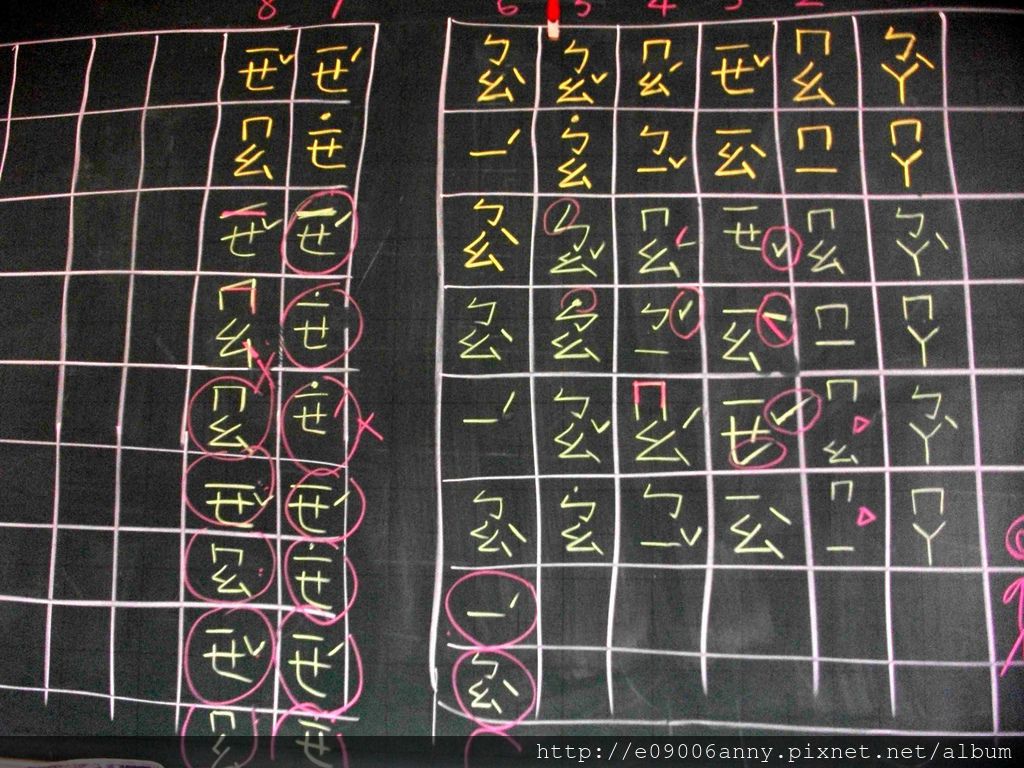 2 ㄅㄚˋ ㄇㄚ ㄅㄚˋ ㄇㄚ ㄅㄚˋ ㄇㄚ
ㄇㄠ ㄇㄧ ㄇㄠ ㄇㄧ ㄇㄠ ㄇㄧ
3 ㄧㄝˇ ㄧㄠˋ ㄧㄝˇ ㄧㄠˋ ㄧㄝˇ ㄧㄠˋ
4 ㄇㄠˊ ㄅㄧˇ ㄇㄠˊ ㄅㄧˇ ㄇㄠˊ ㄅㄧˇ
5 ㄅㄠˇ ˙ㄅㄠ ㄅㄠˇ ˙ㄅㄠ ㄅㄠˇ ˙ㄅㄠ
6 ㄅㄠˋ ㄧˊ ㄅㄠˋ ㄅㄠˋ ㄧˊ ㄅㄠˋ ㄧˊ ㄅㄠˋ
7 ㄧㄝˊ ˙ㄧㄝ ㄧㄝˊ ˙ㄧㄝ ˙ㄧㄝ ㄧㄝˊ ˙ㄧㄝ ㄧㄝˊ ˙ㄧㄝ
8 ㄧㄝˇ ㄇㄠ ㄧㄝˇ ㄇㄠ ㄇㄠ ㄧㄝˇ ㄇㄠ ㄧㄝˇ ㄇㄠ
http://e09006anny.pixnet.net/album